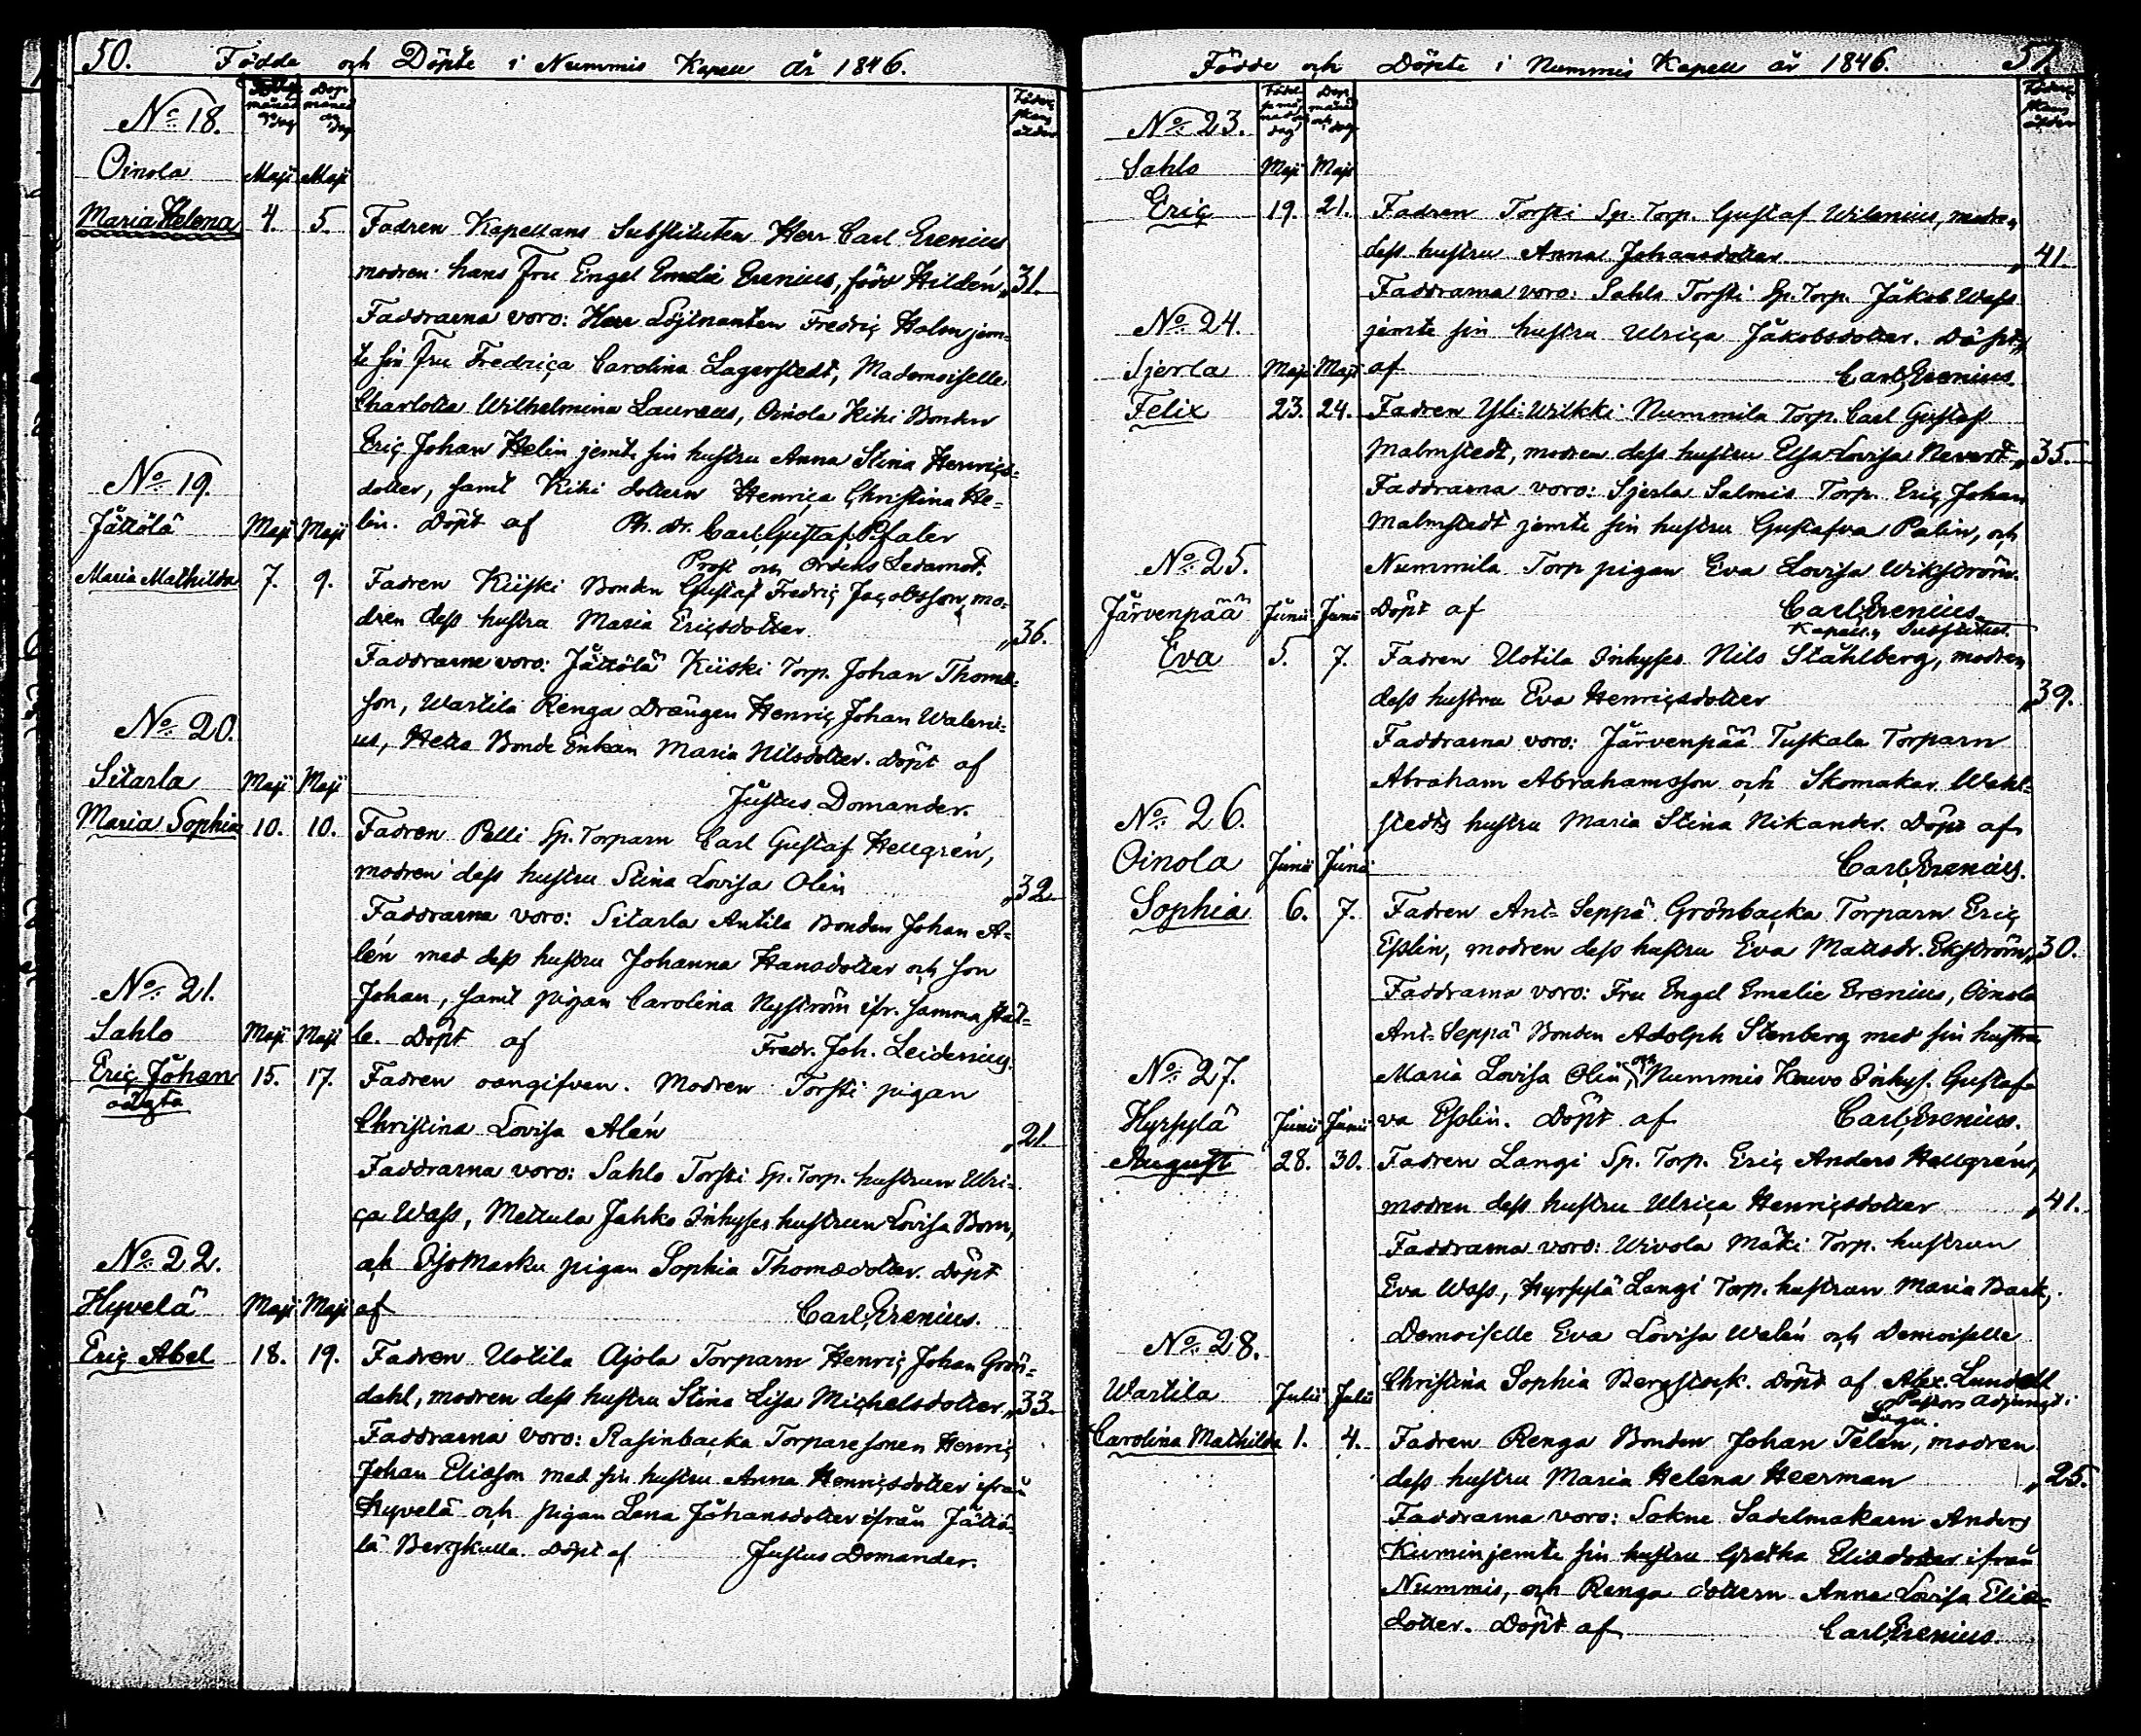 50. Födda och Döpte i Nummis Kapell år 1846.
Födelse månad och dag
Dop månad och dag
Föderskans ålder
No 18.
Oinola Maji Maji
Maria Helena 4. 5. Fadren Kapellans Substituten Herr Carl Erenius
modren: hans Fru Engel Emelie Erenius, född Hildén „31.
Faddrarna voro: Herr Löjtnanten Fredric Holm jem-
te sin Fru Fredrica Carolina Lagerstedt, Mademoiselle
Charlotta Wilhelmina Laureus, Oinola Kihi Bonden
Eric Johan Helin jemte sin hustru Anna Stina Henrics-
dotter, samt Kihi dottern Henrica Christina He-
lin. Döpt af Ph. Dr. Carl Gustaf Pfaler
Prost och Ordens Ledamot.
No 19.
Jättölä Maji Maji
Maria Mathilda 7. 9. Fadren Kiiski Bonden Gustaf Fredric Jacobsson, mo-
dren dess hustru Maria Ericsdotter „36.
Faddrarne voro: Jättölä Kiiski Torp. Johan Thomas-
son, Wartila Renga Drängen Henric Johan Waleni-
us, Heta Bonde Enkan Maria Nilsdotter. döpt af
Justus Domander.
No 20.
Sitarla Maji Maji
Maria Sophia 10. 10. Fadren Pelli Sp. Torparn Carl Gustaf Hellgrén,
modren dess hustru Stina Lovisa Olin „32
Faddrarna voro: Sitarla Antila Bonden Johan A-
lén med dess hustru Johanna Hansdotter och son
Johan, samt pigan Carolina Nyström ifr. samma stäl-
le. Döpt af Fredr. Joh. Leidenius.
No 21.
Sahlo Maji Maji
Eric Johan 15. 17. Fadren oangifven. Modren Torsti pigan
oägta
Christina Lovisa Alén „21
Faddrarna voro: Sahlo Torsti Sp. Torp. hustrun Ulri-
ca Wass, Mettula Jahko Inhyses hustrun Lovisa Bom,
och Ojo Marku pigan Sophia Thomasdotter. Döpt
af Carl Erenius.
No 22.
Hyvelä Maji Maji
Eric Abel 18. 19. Fadren Uotila Ojola Torparn Henric Johan Grön-
dahl, modren dess hustru Stina Lisa Michelsdotter „33
Faddrarna voro: Rasinbacka Torparesonen Henric
Johan Eliasson med sin hustru Anna Henricsdotter ifrån
Hyvelä och pigan Lena Johansdotter ifrån Jättö-
lä Bergkulla. Döpt af Justus Domander.
Födde och Döpte i Nummis Kapell år 1846. 51.
Födelse månad dag
Dop månad och dag
Föderskans ålder
No 23.
Sahlo Maji Maji
Eric 19. 21. Fadren Torsti Sp. Torp. Gustaf Wilenius, modren
dess hustru Anna Johansdotter „41.
Faddrarna voro: Sahlo Torsti Sp. Torp. Jakob Wass
jemte sin hustru Ulrica Jakobsdotter. Döpt
af Carl Erenius
No 24.
Sjerla Maji Maji
Felix 23. 24. Fadren Yli-Wilkki Nummila Torp. Carl Gustaf
Malmstedt, modren dess hustru Elsa Lovisa Nevert „35.
Faddrarna voro: Sjerla Salmis Torp. Eric Johan
Malmstedt jemte sin hustru Gustafva Palin, och
Nummila Torp pigan Eva Lovisa Wikström.
Döpt af Carl Erenius
Kapell. Substitut.
No 25.
Järvenpää Junii Junii
Eva 5. 7. Fadren Uotila Inhyses Nils Ståhlberg, modren
dess hustru Eva Henricsdotter „39.
Faddrarna voro: Järvenpää Tuskala Torparn
Abraham Abrahamsson och Skomakar Wahl-
stedts hustru Maria Stina Nikander. Döpt af
Carl Erenius.
No 26.
Oinola Junii Junii
Sophia 6. 7. Fadren Ant-Seppä Grönbacka Torparn Eric
Esslin, modren dess hustru Eva Mattsdr. Ekström „30.
Faddrarna voro: Fru Engel Emelie Erenius, Oinola
Ant-Seppä Bonden Adolph Stenberg med sin hustru
Maria Lovisa Olin, och Nummis Kouvo Inhys. Gustaf-
va Esslin. Döpt af Carl Erenius.
No 27.
Hyrsylä Junii Junii
August 28. 30. Fadren Langi Sp. Torp. Eric Anders Hellgrén,
modren dess hustru Ulrica Henricsdotter „41.
Faddrarna voro: Wivola Mäki Torp. hustrun
Eva Wass, Hyrsylä Langi Torp. hustrun Maria Bark,
Demoiselle Eva Lovisa Walén och Demoiselle
Christina Sophia Bergstock. Döpt af Alex. Lundell
Pastors Adjunct i
No 28.
Wartila Julii Julii
Carolina Mathilda 1. 4. Fadren Renga Bonden Johan Telén, modren
dess hustru Maria Helena Heerman „25.
Faddrarna voro: Sokne Sadelmakarn Anders
Kumin jemte sin hustru Gretha Eliasdotter ifrån
Nummis, och Renga dottern Anna Lovisa Elias-
dotter. Döpt af Carl Erenius.